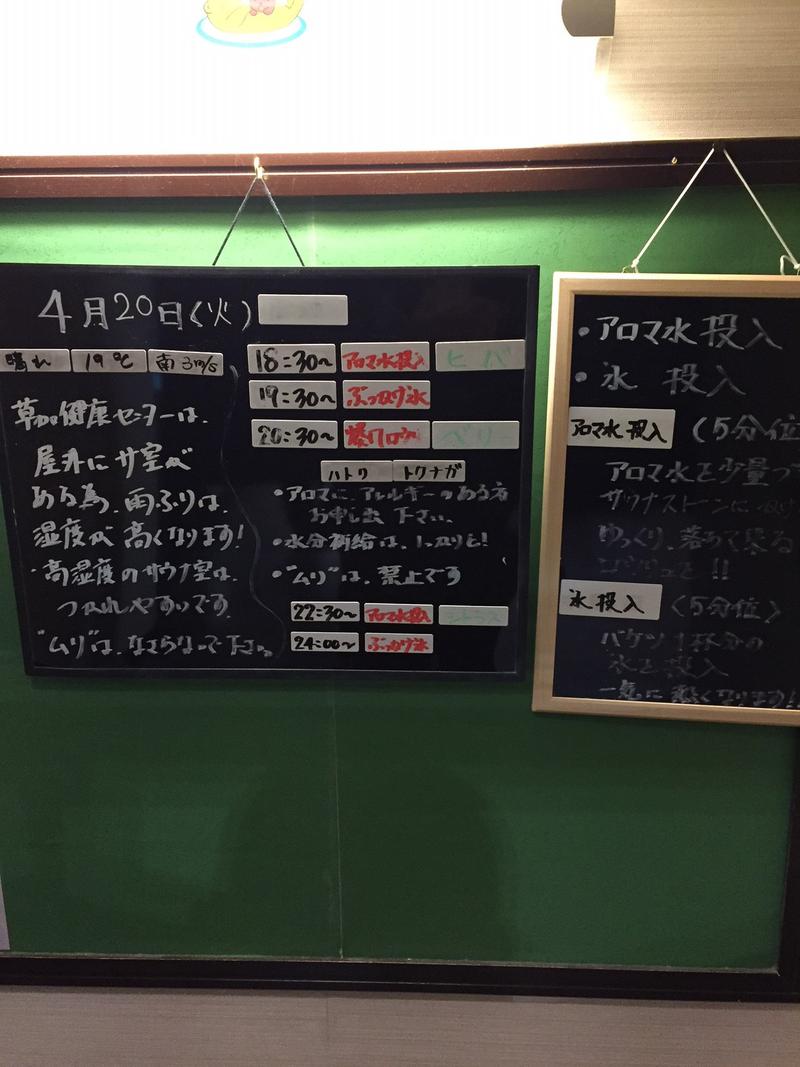 4月20日(火)
晴れ 19℃ 南3m/s
草加健康センターは、
屋外にサ室が
ある為、雨ふりは、
湿度が高くなります!
高湿度のサウナ室は、
つかれやすいです。
"ムリ"は、なさらないで下さい。
18:30~ アロマ水投入 ヒバ
19:30~ ぶっかけ氷
20:30~ 爆風ロウリュ ベリー
ハトリ トクナガ
・アロマに、アレルギーのある方
お申し出下さい。
・水分補給は、しっかりと!
・"ムリ"は、禁止です
22:30~ アロマ水投入 シトラス
24:00~ ぶっかけ氷
・アロマ水投入
・氷 投入
アロマ水投入 (5分位
アロマ水を少量
サウナストーンに
ゆっくり、落ちて来る
氷投入 (5分位)
バケツ1杯分の
氷を投入
一気に熱くなります!!